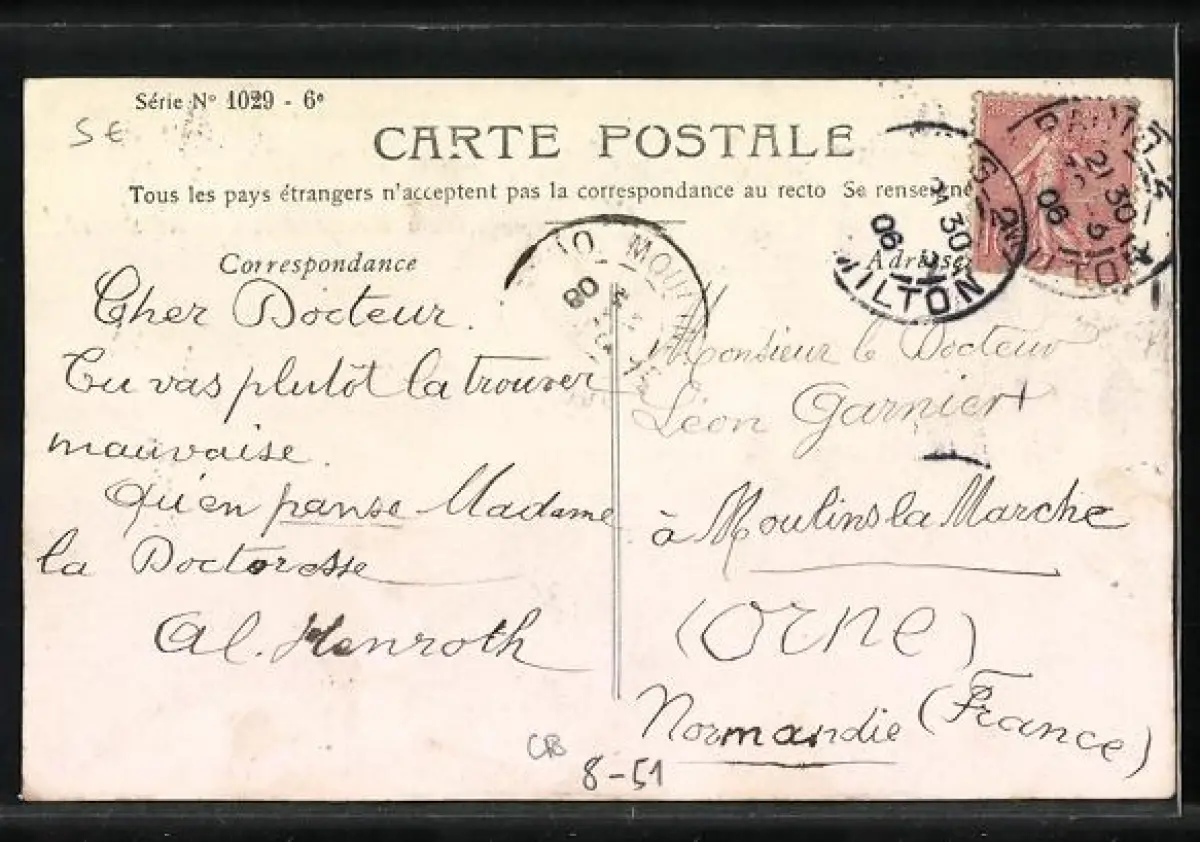 Série N° 1029 - 6e
5 €
CARTE POSTALE
Tous les pays étrangers n'acceptent pas la correspondance au recto Se renseigne
Correspondance
Cher Docteur.
Tu vas plutôt la trouver
mauvaise.
Qu'en panse Madame
la Doctoresse
Al. Henroth
Adresse
Monsieur le Docteur
Léon Garnier
à Moulins la Marche
(Orne)
Normandie (France)
PARIS
21 30
06
MILTON
21 30
06
MILTON
MOULIN
06
CB
8-51